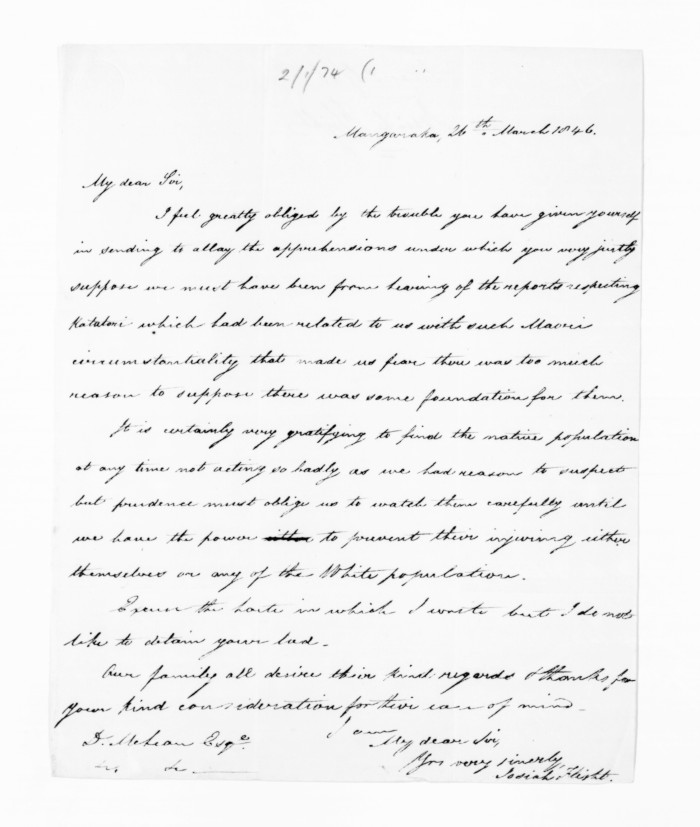 2/1/74 (1
Mangaraka, 26th. March 1846.
My dear Sir,
I feel greatly obliged by the trouble you have given yourself
in sending to allay the apprehensions under which you very justly
suppose we must have been from hearing of the reports respecting
Katatori which had been related to us with such Maori
circumstantiality that made us fear there was too much
reason to suppose there was some foundation for them.
It is certainly very gratifying to find the native population
at any time not acting so badly as we had reason to suspect
but prudence must oblige us to watch them carefully until
we have the power either to prevent their injuring either
themselves or any of the White population.
Excuse the haste in which I write but I do not
like to detain your lad.
Our family all desire their kind regards & thanks for
your kind consideration for their ease of mind.
I am
D. McLean Esqre.
My dear Sir,
Yrs very sincerly,
Josiah Flight.